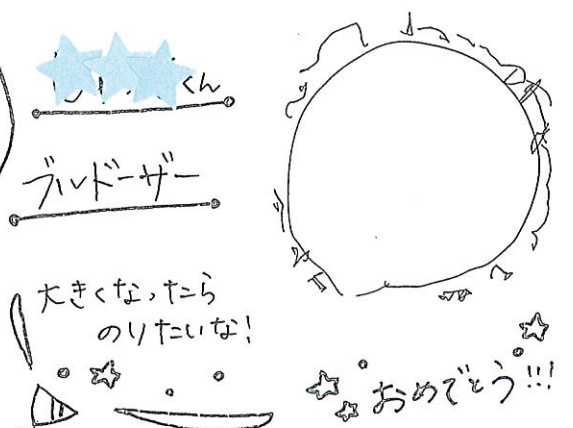 くん
ブルドーザー
大きくなったら
のりたいな!
おめでとう!!!